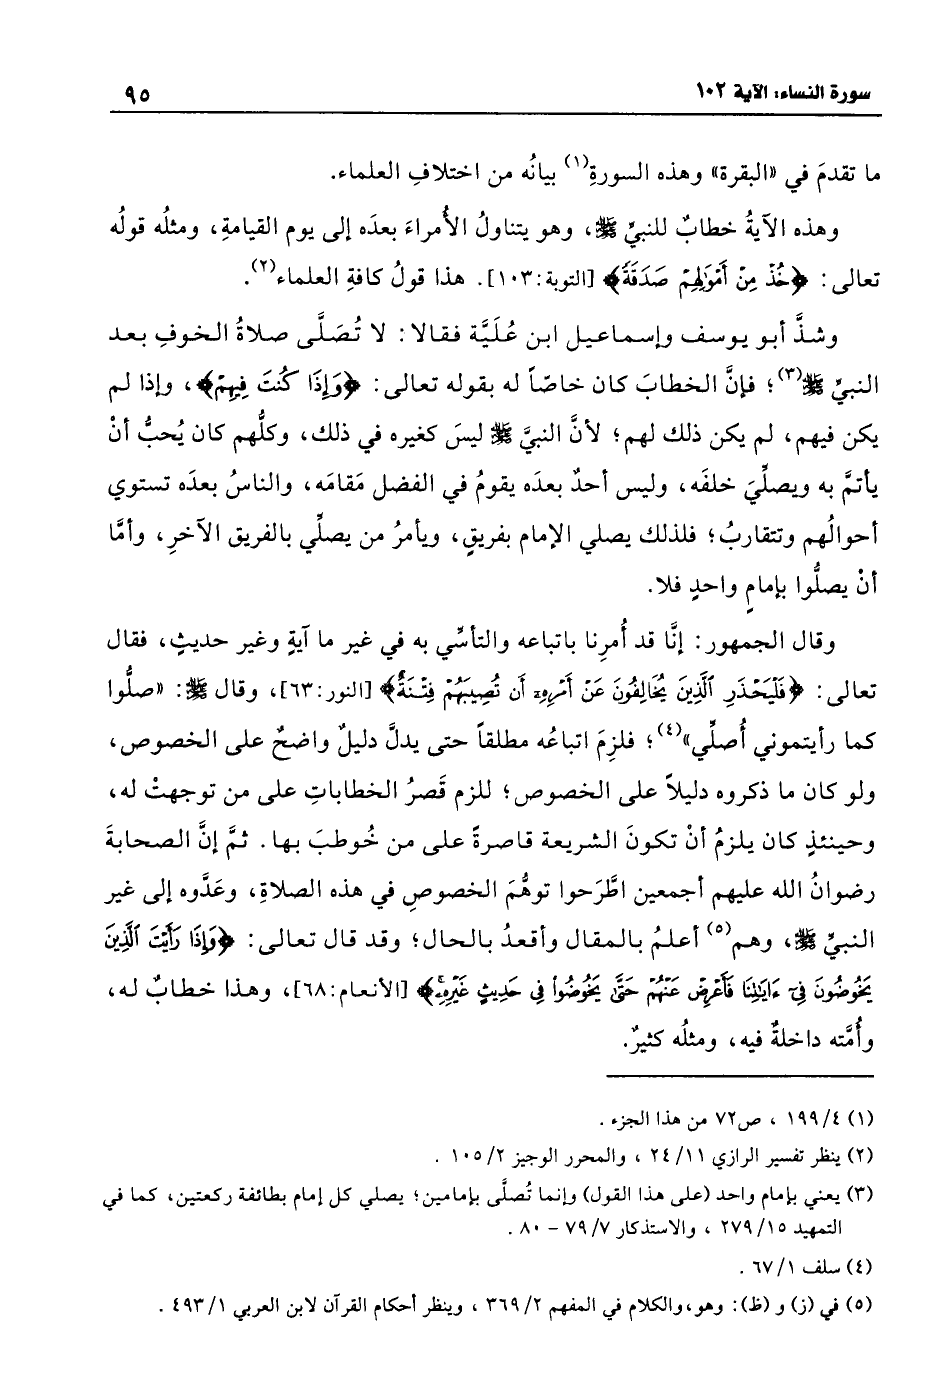 سورة النساء: الآية ١٠٢
٩٥
ما تقدمَ في «البقرة» وهذه السورةِ(١) بيانُه من اختلافِ العلماء.
وهذه الآيةُ خطابٌ للنبيِّ ﷺ، وهو يتناولُ الأُمراءَ بعدَه إلى يوم القيامةِ، ومثلُه قولُه
تعالى: ﴿خُذْ مِنْ أَمْوَالِهِمْ صَدَقَةً﴾ [التوبة:١٠٣]. هذا قولُ كافةِ العلماء(٢).
وشذَّ أبو يوسف وإسماعيل ابن عُلَيَّة فقالا: لا تُصَلَّى صلاةُ الخوفِ بعد
النبيِّ ﷺ(٣)؛ فإنَّ الخطابَ كان خاصّاً له بقوله تعالى: ﴿وَإِذَا كُنتَ فِيهِمْ﴾، وإذا لم
يكن فيهم، لم يكن ذلك لهم؛ لأنَّ النبيَّ ﷺ ليسَ كغيره في ذلك، وكلُّهم كان يُحبُّ أنْ
يأتمَّ به ويصلِّيَ خلفَه، وليس أحدٌ بعدَه يقومُ في الفضل مَقامَه، والناسُ بعدَه تستوي
أحوالُهم وتتقاربُ؛ فلذلك يصلي الإمام بفريقٍ، ويأمرُ من يصلِّي بالفريق الآخرِ، وأمَّا
أنْ يصلُّوا بإمامٍ واحدٍ فلا.
وقال الجمهور: إنَّا قد أُمرنا باتباعه والتأسِّي به في غير ما آيةٍ وغير حديثٍ، فقال
تعالى: ﴿فَلْيَحْذَرِ ٱلَّذِينَ يُخَالِفُونَ عَنْ أَمْرِهِۦٓ أَن تُصِيبَهُمْ فِتْنَةٌ﴾ [النور:٦٣]، وقال ﷺ: «صلُّوا
كما رأيتموني أُصلِّي»(٤)؛ فلزِمَ اتباعُه مطلقاً حتى يدلَّ دليلٌ واضحٌ على الخصوص،
ولو كان ما ذكروه دليلاً على الخصوص؛ للزم قَصرُ الخطاباتِ على من توجهتْ له،
وحينئذٍ كان يلزمُ أنْ تكونَ الشريعة قاصرةً على من خُوطبَ بها. ثمَّ إنَّ الصحابةَ
رضوانُ الله عليهم أجمعين اطَّرَحوا توهُّمَ الخصوصِ في هذه الصلاةِ، وعَدَّوه إلى غير
النبيِّ ﷺ، وهم(٥) أعلمُ بالمقال وأقعدُ بالحال؛ وقد قال تعالى: ﴿وَإِذَا رَأَيْتَ ٱلَّذِينَ
يَخُوضُونَ فِىٓ ءَايَٰتِنَا فَأَعْرِضْ عَنْهُمْ حَتَّىٰ يَخُوضُوا۟ فِى حَدِيثٍ غَيْرِهِۦ﴾ [الأنعام:٦٨]، وهذا خطابٌ له،
وأُمَّته داخلةٌ فيه، ومثلُه كثيرٌ.
(١) ١٩٩/٤ ، ص٧٢ من هذا الجزء .
(٢) ينظر تفسير الرازي ٢٤/١١ ، والمحرر الوجيز ١٠٥/٢ .
(٣) يعني بإمام واحد (على هذا القول) وإنما تُصلَّى بإمامين؛ يصلي كل إمام بطائفة ركعتين، كما في
التمهيد ٢٧٩/١٥ ، والاستذكار ٧٩/٧ – ٨٠ .
(٤) سلف ٦٧/١ .
(٥) في (ز) و (ظ): وهو،والكلام في المفهم ٣٦٩/٢ ، وينظر أحكام القرآن لابن العربي ٤٩٣/١ .